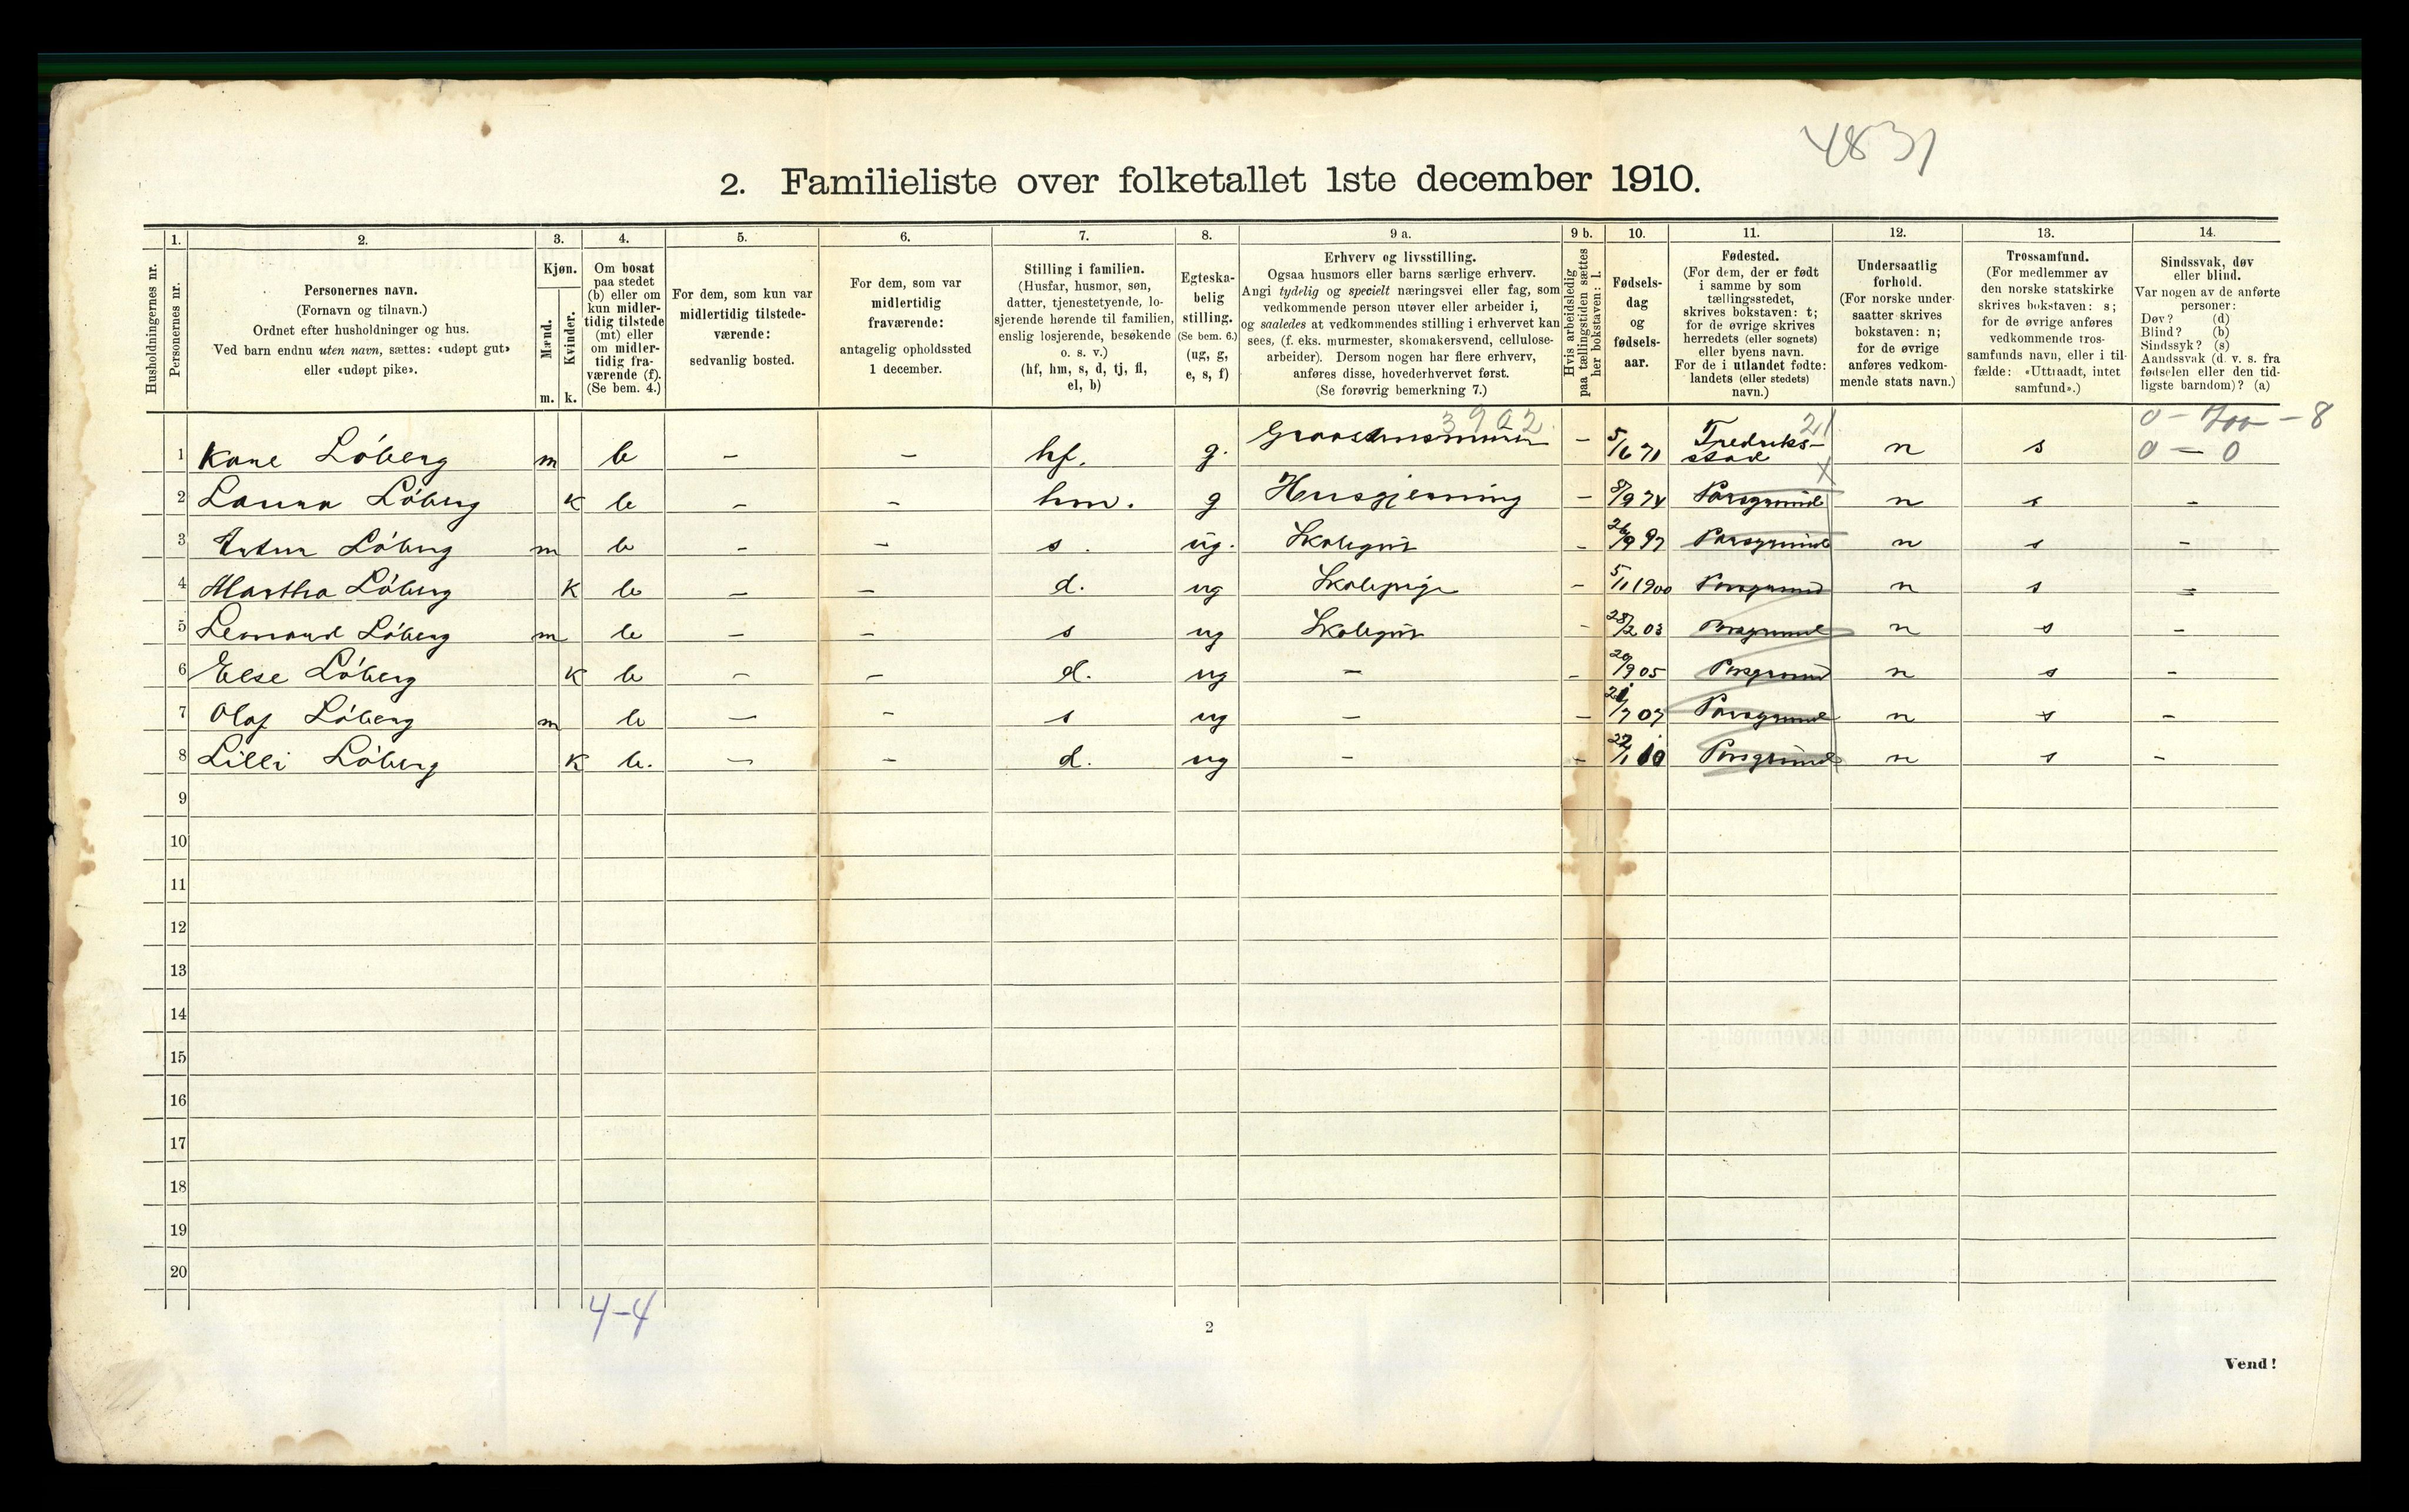 4831
2. Familieliste over folketallet 1ste december 1910.
1. 2. 3. 4. 5. 6. 7. 8. 9 a. 9 b. 10. 11. 12. 13. 14.
Husholdningernes nr.
Personernes nr.
Personernes navn.
(Fornavn og tilnavn.)
Ordnet efter husholdninger og hus.
Ved barn endnu uten navn, sættes: «udøpt gut»
eller «udøpt pike».
Kjøn.
Mænd.
Kvinder.
m. k.
Om bosat
paa stedet
(b) eller om
kun midler-
tidig tilstede
(mt) eller
om midler-
tidig fra-
værende (f).
(Se bem. 4.)
For dem, som kun var
midlertidig tilstede-
værende:
sedvanlig bosted.
For dem, som var
midlertidig
fraværende:
antagelig opholdssted
1 december.
Stilling i familien.
(Husfar, husmor, søn,
datter, tjenestetyende, lo-
sjerende hørende til familien,
enslig losjerende, besøkende
o. s. v.)
(hf, hm, s, d, tj, fl,
el, b)
Egteska-
belig
stilling.
(Se bem. 6.)
(ug, g,
e, s, f)
Erhverv og livsstilling.
Ogsaa husmors eller barns særlige erhverv.
Angi tydelig og specielt næringsvei eller fag, som
vedkommende person utøver eller arbeider i,
og saaledes at vedkommendes stilling i erhvervet kan
sees, (f. eks. murmester, skomakersvend, cellulose-
arbeider). Dersom nogen har flere erhverv,
anføres disse, hovederhvervet først.
(Se forøvrig bemerkning 7.)
Hvis arbeidsledig
paa tællingstiden sættes
her bokstaven: l.
Fødsels-
dag
og
fødsels-
aar.
Fødested.
(For dem, der er født
i samme by som
tællingsstedet,
skrives bokstaven: t;
for de øvrige skrives
herredets (eller sognets)
eller byens navn.
For de i utlandet fødte:
landets (eller stedets)
navn.)
Undersaatlig
forhold.
(For norske under-
saatter skrives
bokstaven: n;
for de øvrige
anføres vedkom-
mende stats navn.)
Trossamfund.
(For medlemmer av
den norske statskirke
skrives bokstaven: s;
for de øvrige anføres
vedkommende tros-
samfunds navn, eller i til-
fælde: «Uttraadt, intet
samfund».)
Sindssvak, døv
eller blind.
Var nogen av de anførte
personer:
Døv? (d)
Blind? (b)
Sindssyk? (s)
Aandssvak (d. v. s. fra
fødselen eller den tid-
ligste barndom)? (a)
3902 21 0 - - 8
1 Kare Löberg m b - - hf. g. - 5/6 71 Fredriks-stad n s 0 - 0
2 Laura Löberg k b - - hm. g Husgjerning - 8/9 74 Porsgrund n s -
3 Artur Löberg m b - - s. ug. Skolegut - 26/9 97 Porsgrund n s -
4 Martha Löberg k b - - d. ug Skolepige - 5/11 1900 Porsgrund n s -
5 Leonard Löberg m b - - s ug Skolegut - 28/2 03 Porsgrund n s -
6 Else Löberg k b - - d. ug - - 20/9 05 Porsgrund n s -
7 Olaf Löberg m b - - s ug - - 21/7 07 Porsgrund n s -
8 Lilli Löberg k b. - - d. ug - - 22/1 10 Porsgrund n s -
9
10
11
12
13
14
15
16
17
18
19
20
4-4
2
Vend!